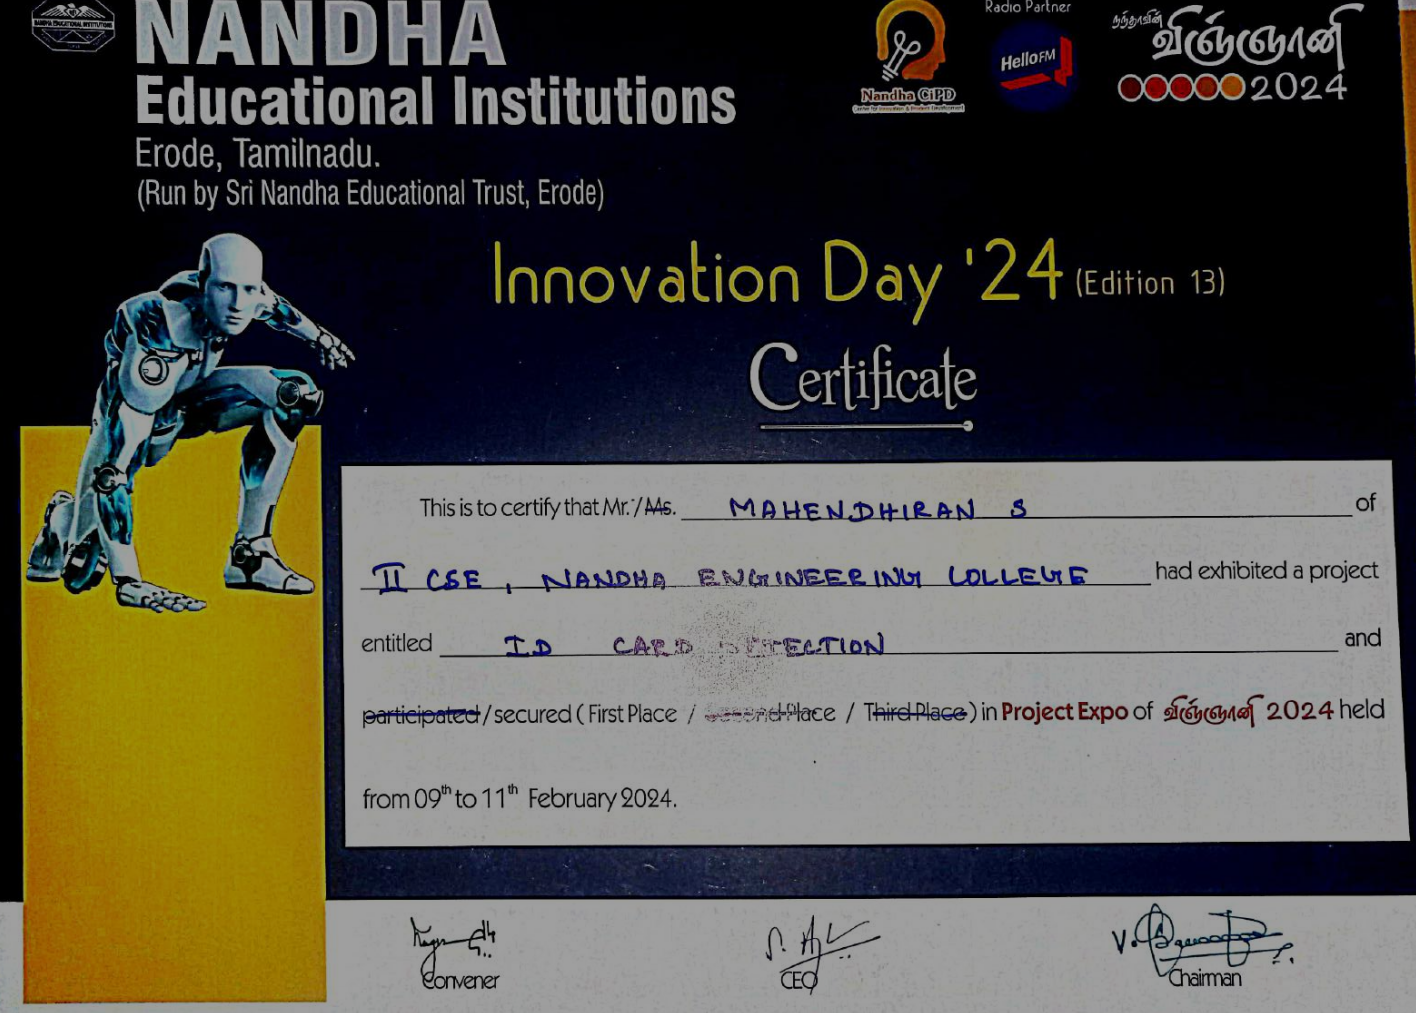 NANDHA
Educational Institutions
Erode, Tamilnadu.
(Run by Sri Nandha Educational Trust, Erode)
Nandha CiPD
Center for Innovation & Product Development
Radio Partner
Hello FM
நந்தாவின்
விஞ்ஞானி
2024
Innovation Day '24 (Edition 13)
Certificate
This is to certify that Mr. / Ms. MAHENDHIRAN S of
II CSE, NANDHA ENGINEERING COLLEGE had exhibited a project
entitled ID CARD DETECTION and
participated / secured ( First Place / Second Place / Third Place ) in Project Expo of விஞ்ஞானி 2024 held
from 09th to 11th February 2024.
Convener
CEO
Chairman